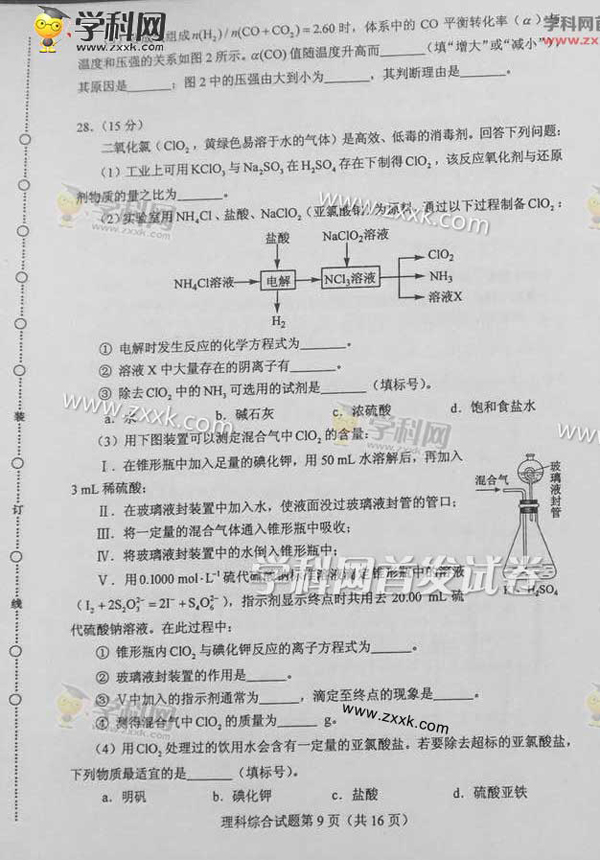 学科网
www.zxxk.com
组成n(H₂)/n(CO+CO₂)=2.60时，体系中的 CO 平衡转化率（α）与
学科网
www.zx
温度和压强的关系如图2所示。α(CO) 值随温度升高而______（填“增大”或“减小”），
其原因是______；图2中的压强由大到小为______，其判断理由是______。
28.（15分）
二氧化氯（ClO₂，黄绿色易溶于水的气体）是高效、低毒的消毒剂。回答下列问题：
（1）工业上可用KClO₃与Na₂SO₃在H₂SO₄存在下制得ClO₂，该反应氧化剂与还原
剂物质的量之比为______。
（2）实验室用NH₄Cl、盐酸、NaClO₂（亚氯酸钠）为原料，通过以下过程制备ClO₂：
盐酸
NaClO₂溶液
NH₄Cl溶液
电解
NCl₃溶液
ClO₂
NH₃
溶液X
H₂
① 电解时发生反应的化学方程式为______。
② 溶液X中大量存在的阴离子有______。
③ 除去ClO₂中的NH₃可选用的试剂是______（填标号）。
a．水 b．碱石灰 c．浓硫酸 d．饱和食盐水
（3）用下图装置可以测定混合气中ClO₂的含量：
Ⅰ．在锥形瓶中加入足量的碘化钾，用50 mL水溶解后，再加入
3 mL 稀硫酸；
Ⅱ．在玻璃液封装置中加入水，使液面没过玻璃液封管的管口；
Ⅲ．将一定量的混合气体通入锥形瓶中吸收；
Ⅳ．将玻璃液封装置中的水倒入锥形瓶中；
Ⅴ．用0.1000 mol·L⁻¹硫代硫酸钠标准溶液滴定锥形瓶中的溶液
（I₂+2S₂O₃²⁻=2I⁻+S₄O₆²⁻），指示剂显示终点时共用去 20.00 mL 硫
代硫酸钠溶液。在此过程中：
混合气
玻璃液封管
KI、H₂SO₄
① 锥形瓶内ClO₂与碘化钾反应的离子方程式为______。
② 玻璃液封装置的作用是______。
③ Ⅴ中加入的指示剂通常为______，滴定至终点的现象是______。
④ 测得混合气中ClO₂的质量为______g。
（4）用ClO₂处理过的饮用水会含有一定量的亚氯酸盐。若要除去超标的亚氯酸盐，
下列物质最适宜的是______（填标号）。
a．明矾 b．碘化钾 c．盐酸 d．硫酸亚铁
理科综合试题第9页（共16页）
装
订
线
学科网首发试卷